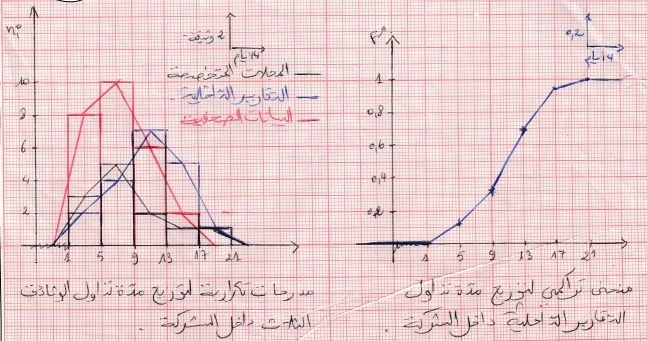 nᵢ
2 وثيقة
4 أيام
المجلات المتخصصة
التقارير الداخلية
البيانات الصحفية
10
8
6
4
2
1 5 9 13 17 21
مدرجات تكرارية لتوزيع مدة تداول الوثائق
الثلاث داخل الشركة .
0,2
4 أيام
1
0,8
0,6
0,4
0,2
1 5 9 13 17 21
منحنى تراكمي لتوزيع مدة تداول
التقارير الداخلية داخل الشركة .